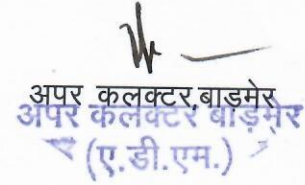 अपर कलक्टर,बाड़मेर
अपर कलक्टर बाड़मेर
(ए.डी.एम.)